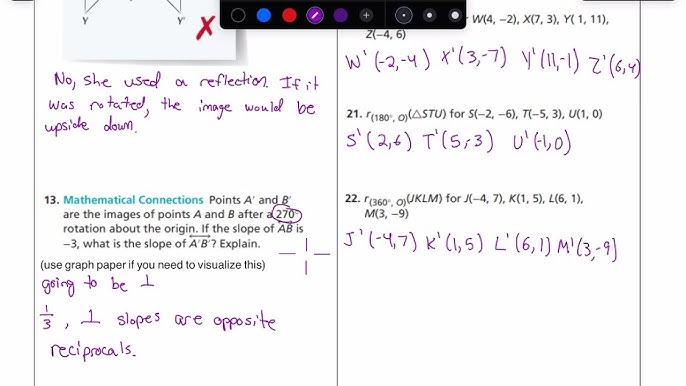 Y
Y'
No, she used a reflection. If it
was rotated, the image would be
upside down.
13. Mathematical Connections Points A' and B'
are the images of points A and B after a 270°
rotation about the origin. If the slope of AB is
−3, what is the slope of A'B'? Explain.
(use graph paper if you need to visualize this)
going to be ⊥
1/3, ⊥ slopes are opposite
reciprocals.
W(4, −2), X(7, 3), Y( 1, 11),
Z(−4, 6)
W'(-2,-4) X'(3,-7) Y'(11,-1) Z'(6,4)
21. r(180°, O)(△STU) for S(−2, −6), T(−5, 3), U(1, 0)
S'(2,6) T'(5,-3) U'(-1,0)
22. r(360°, O)(JKLM) for J(−4, 7), K(1, 5), L(6, 1),
M(3, −9)
J'(-4,7) K'(1,5) L'(6,1) M'(3,-9)